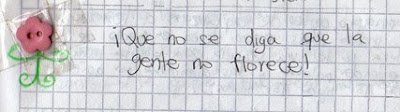 ¡Que no se diga que la
gente no florece!